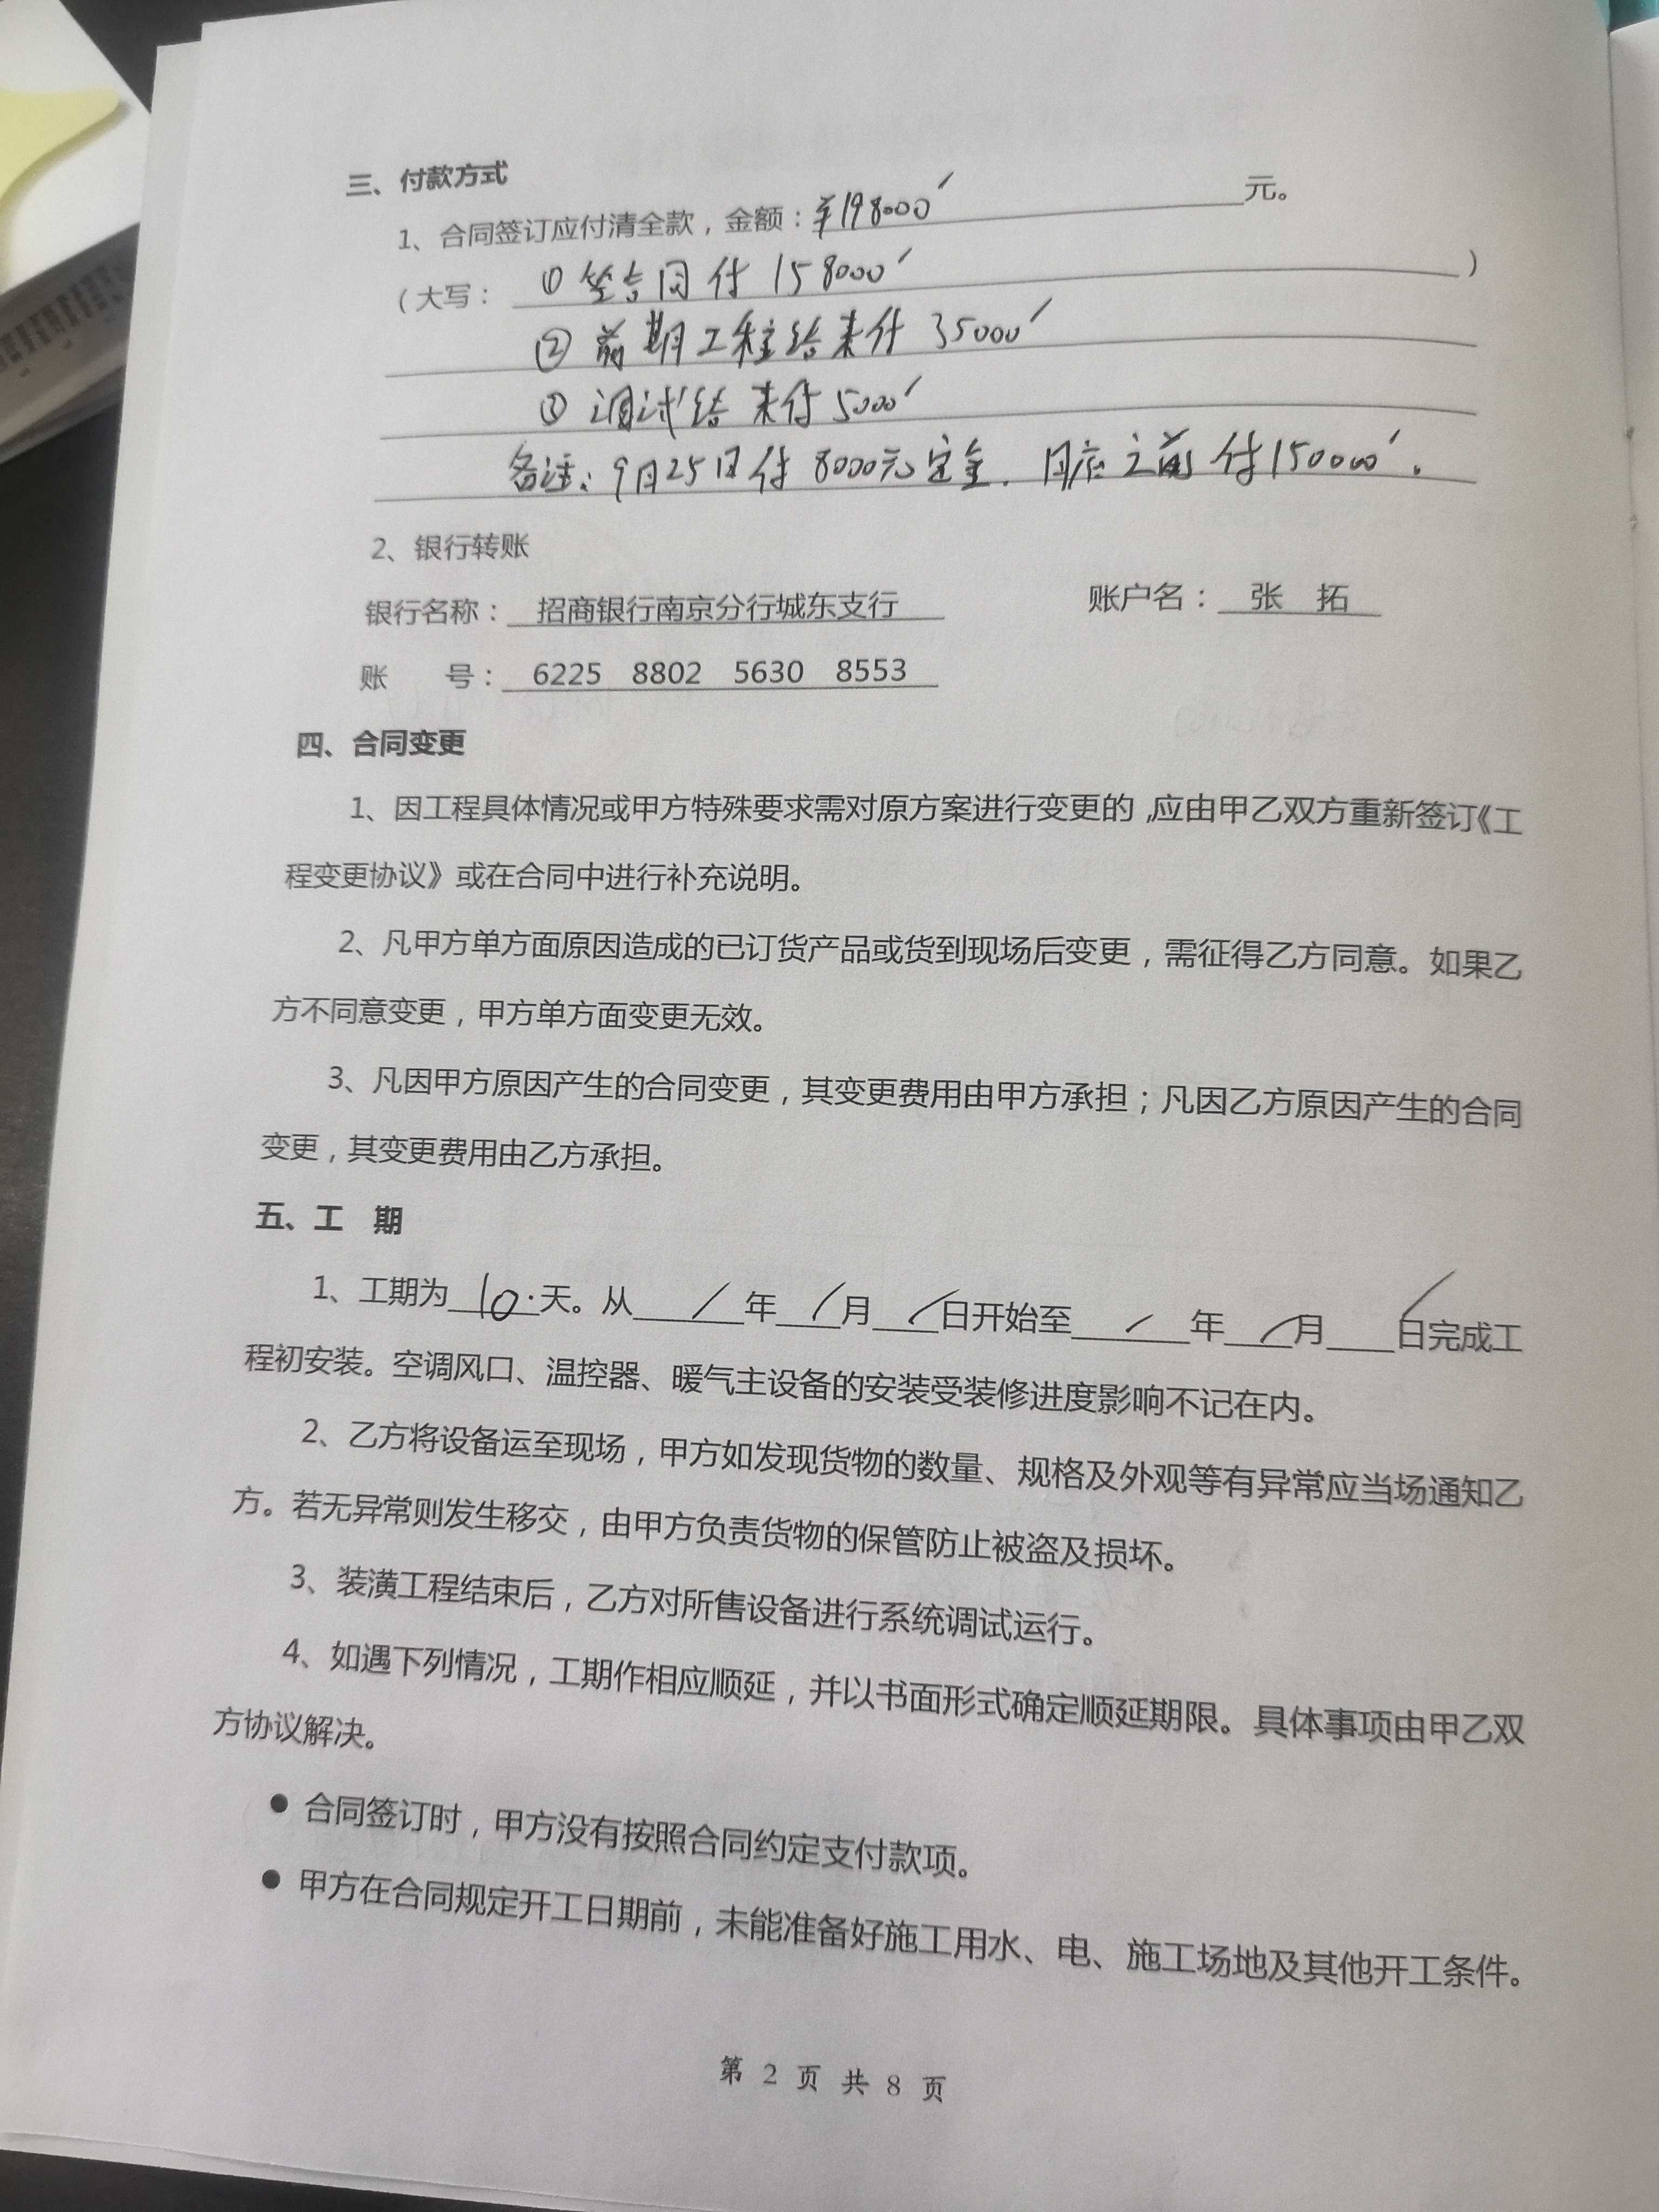 三、付款方式
1、合同签订应付清全款，金额：¥198000 元。
（大写： ① 签合同付 158000 ）
② 前期工程结束付 35000
③ 调试结束付 5000
备注：9月25日付 8000元定金．月底之前付150000．
2、银行转账
银行名称： 招商银行南京分行城东支行 账户名： 张 拓
账 号： 6225 8802 5630 8553
四、合同变更
1、因工程具体情况或甲方特殊要求需对原方案进行变更的，应由甲乙双方重新签订《工
程变更协议》或在合同中进行补充说明。
2、凡甲方单方面原因造成的已订货产品或货到现场后变更，需征得乙方同意。如果乙
方不同意变更，甲方单方面变更无效。
3、凡因甲方原因产生的合同变更，其变更费用由甲方承担；凡因乙方原因产生的合同
变更，其变更费用由乙方承担。
五、工 期
1、工期为 10 天。从 / 年 / 月 / 日开始至 / 年 / 月 / 日完成工
程初安装。空调风口、温控器、暖气主设备的安装受装修进度影响不记在内。
2、乙方将设备运至现场，甲方如发现货物的数量、规格及外观等有异常应当场通知乙
方。若无异常则发生移交，由甲方负责货物的保管防止被盗及损坏。
3、装潢工程结束后，乙方对所售设备进行系统调试运行。
4、如遇下列情况，工期作相应顺延，并以书面形式确定顺延期限。具体事项由甲乙双
方协议解决。
● 合同签订时，甲方没有按照合同约定支付款项。
● 甲方在合同规定开工日期前，未能准备好施工用水、电、施工场地及其他开工条件。
第 2 页 共 8 页